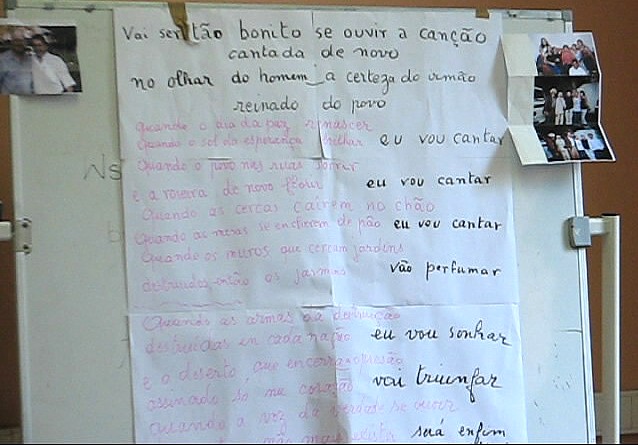 Vai ser tão bonito se ouvir a canção
cantada de novo
no olhar do homem a certeza do irmão
reinado do povo
Quando o dia da paz renascer
Quando o sol da esperança brilhar eu vou cantar
Quando o povo nas ruas sorrir
e a roseira de novo florir eu vou cantar
Quando as cercas caírem no chão
Quando as mesas se encherem de pão eu vou cantar
Quando os muros que cercam jardins
destruídos então os jasmins vão perfumar
Quando as armas da destruição
destruídas em cada nação eu vou sonhar
e o decreto que encerra opressão
assinado só no coração vai triunfar
quando a voz da verdade se ouvir
mais será enfim